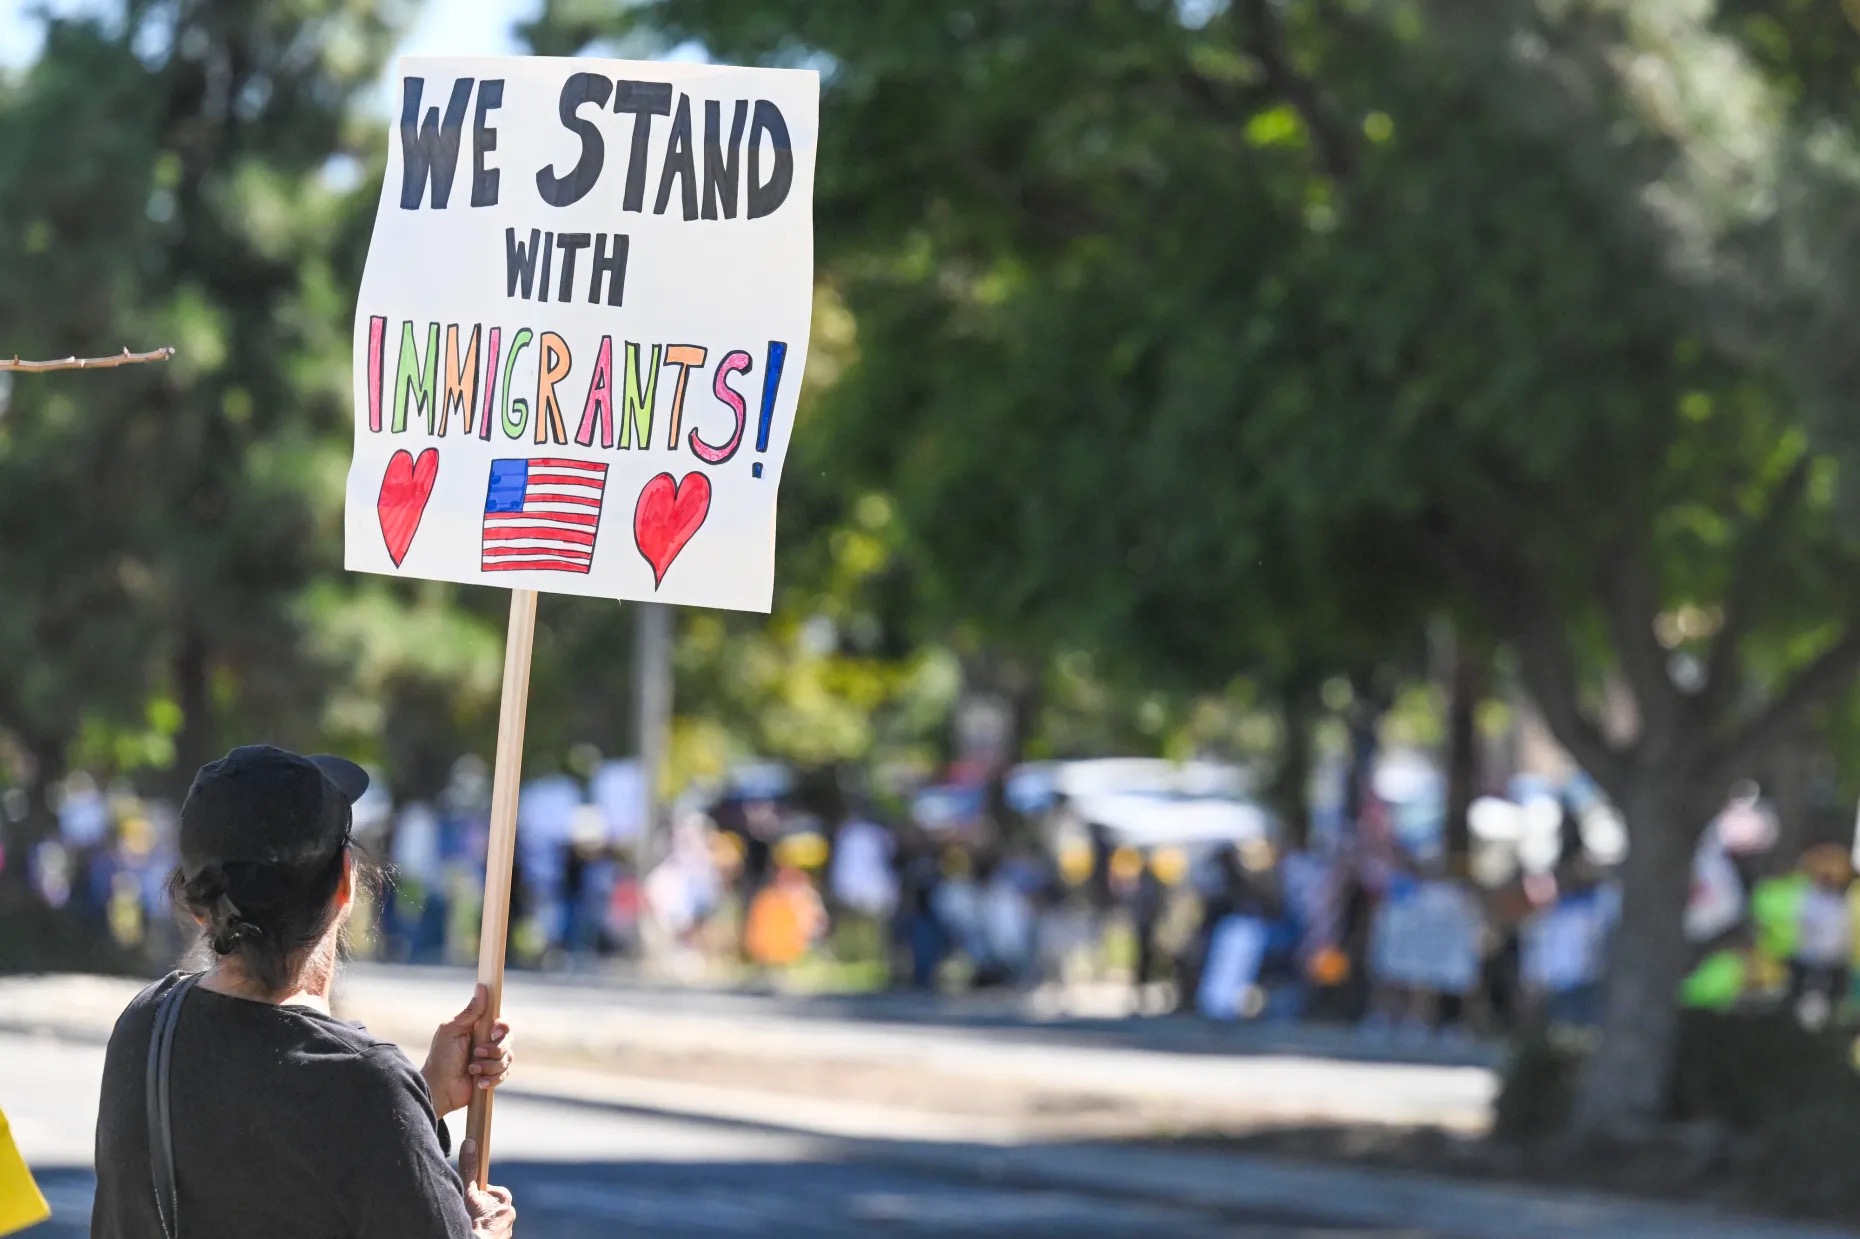 WE STAND
WITH
IMMIGRANTS!